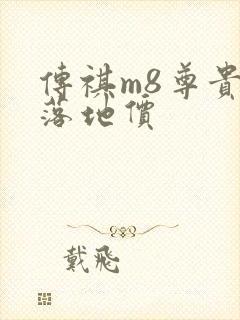 傳祺m8尊貴
落地價
戴飛